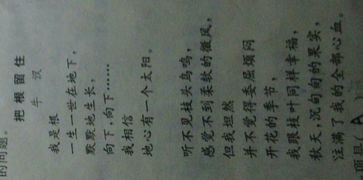 的问题。
把根留住
牛汉
我是根
一生一世在地下，
默默地生长，
向下，向下……
我相信
地心有一个太阳。
听不见枝头鸟鸣，
感觉不到柔软的微风，
但我坦然
并不觉得委屈烦闷
开花的季节，
我跟枝叶同样幸福，
秋天沉甸甸的果实，
注满了我的全部心血。